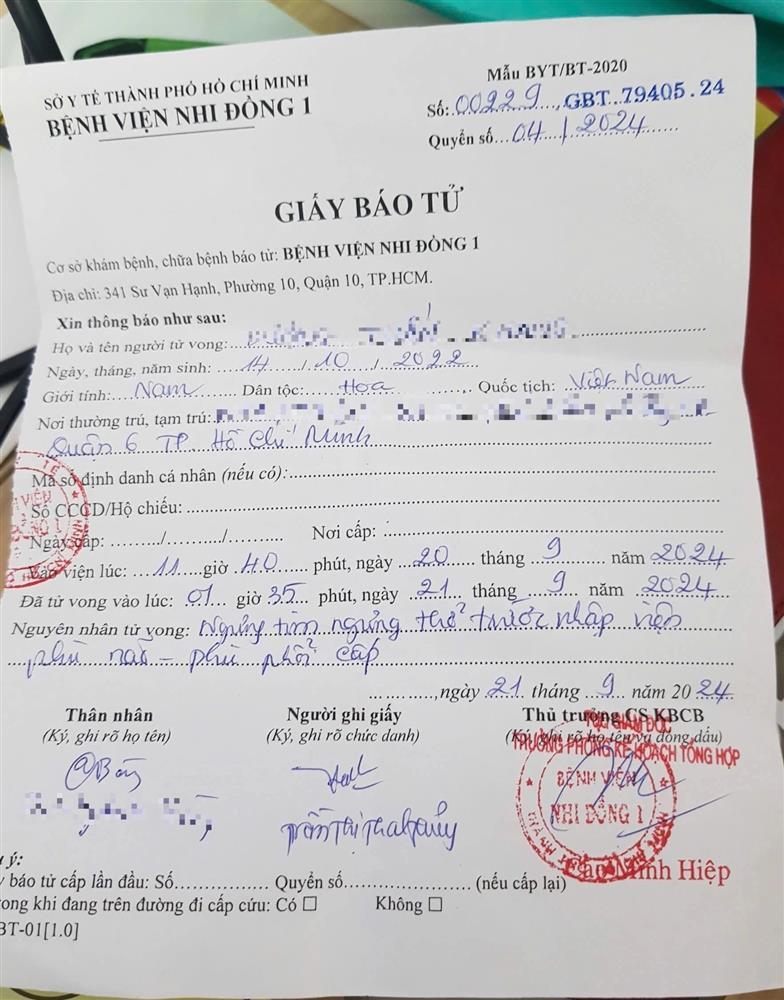 SỞ Y TẾ THÀNH PHỐ HỒ CHÍ MINH
BỆNH VIỆN NHI ĐỒNG 1
Mẫu BYT/BT-2020
Số: 00229 GBT 79405.24
Quyển số 04 / 2024
GIẤY BÁO TỬ
Cơ sở khám bệnh, chữa bệnh báo tử: BỆNH VIỆN NHI ĐỒNG 1
Địa chỉ: 341 Sư Vạn Hạnh, Phường 10, Quận 10, TP.HCM.
Xin thông báo như sau:
Họ và tên người tử vong:
Ngày, tháng, năm sinh: 14 / 10 / 2022
Giới tính: Nam Dân tộc: Hoa Quốc tịch: Việt Nam
Nơi thường trú, tạm trú:
Quận 6 TP. Hồ Chí Minh
Mã số định danh cá nhân (nếu có):
Số CCCD/Hộ chiếu:
Ngày cấp: ......../......../......... Nơi cấp:
Vào viện lúc: 11 giờ 40 phút, ngày 20 tháng 9 năm 2024
Đã tử vong vào lúc: 01 giờ 35 phút, ngày 21 tháng 9 năm 2024
Nguyên nhân tử vong: Ngưng tim ngưng thở trước nhập viện
phù não - phù phổi cấp
......., ngày 21 tháng 9 năm 2024
Thân nhân Người ghi giấy Thủ trưởng CS KBCB
(Ký, ghi rõ họ tên) (Ký, ghi rõ chức danh) (Ký, ghi rõ họ tên và đóng dấu)
TRƯỞNG PHÒNG KẾ HOẠCH TỔNG HỢP
BỆNH VIỆN
NHI ĐỒNG 1
Minh Hiệp
ý:
báo tử cấp lần đầu: Số............... Quyển số................... (nếu cấp lại)
ong khi đang trên đường đi cấp cứu: Có ☐ Không ☐
BT-01[1.0]